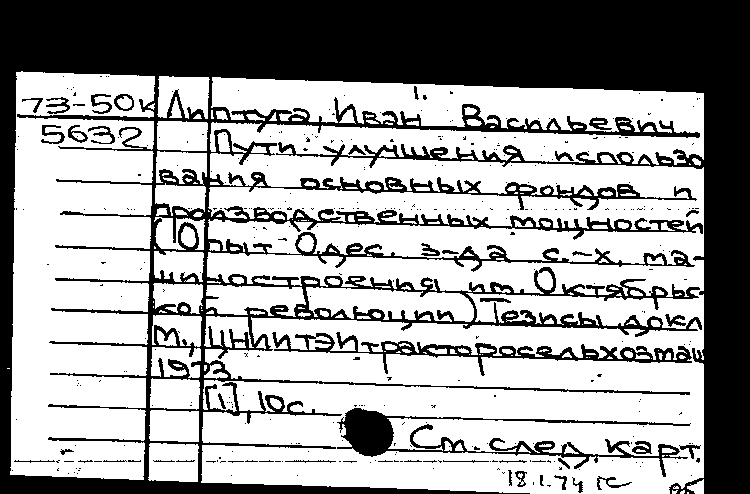 1.
73-50к Липтуга, Иван Васильевич
5632 Пути улучшения использо
вания основных фондов и
производственных мощностей
(Опыт Одес. з-да с.-х. ма-
шиностроения им. Октябрьс-
кой революции) Тезисы докл
М., ЦНИИТЭИтракторосельхозмаш
1973.
[1], 10с.
См. след. карт.
18.1.74 гс